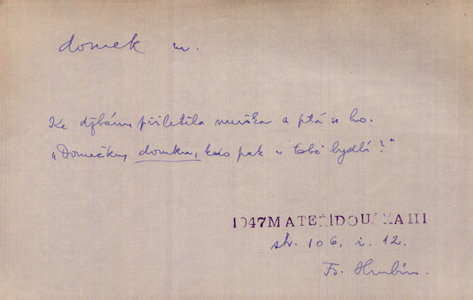 domek m.
Ke džbánu přiletěla muška a ptá se ho.
„Domečku, domku, kdo pak v tobě bydlí?"
1947 MATEŘÍDOUŠKA III
str. 106, i. 12.
Fr. Hrubín.